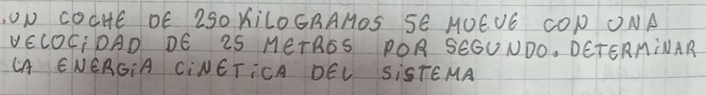 .UN COCHE DE 250 KiLOGRAMOS SE MUEVE CON UNA
VELOCiDAD DE 25 METROS POR SEGUNDO. DETERMiNAR
LA ENERGiA CiNETiCA DEL SiSTEMA